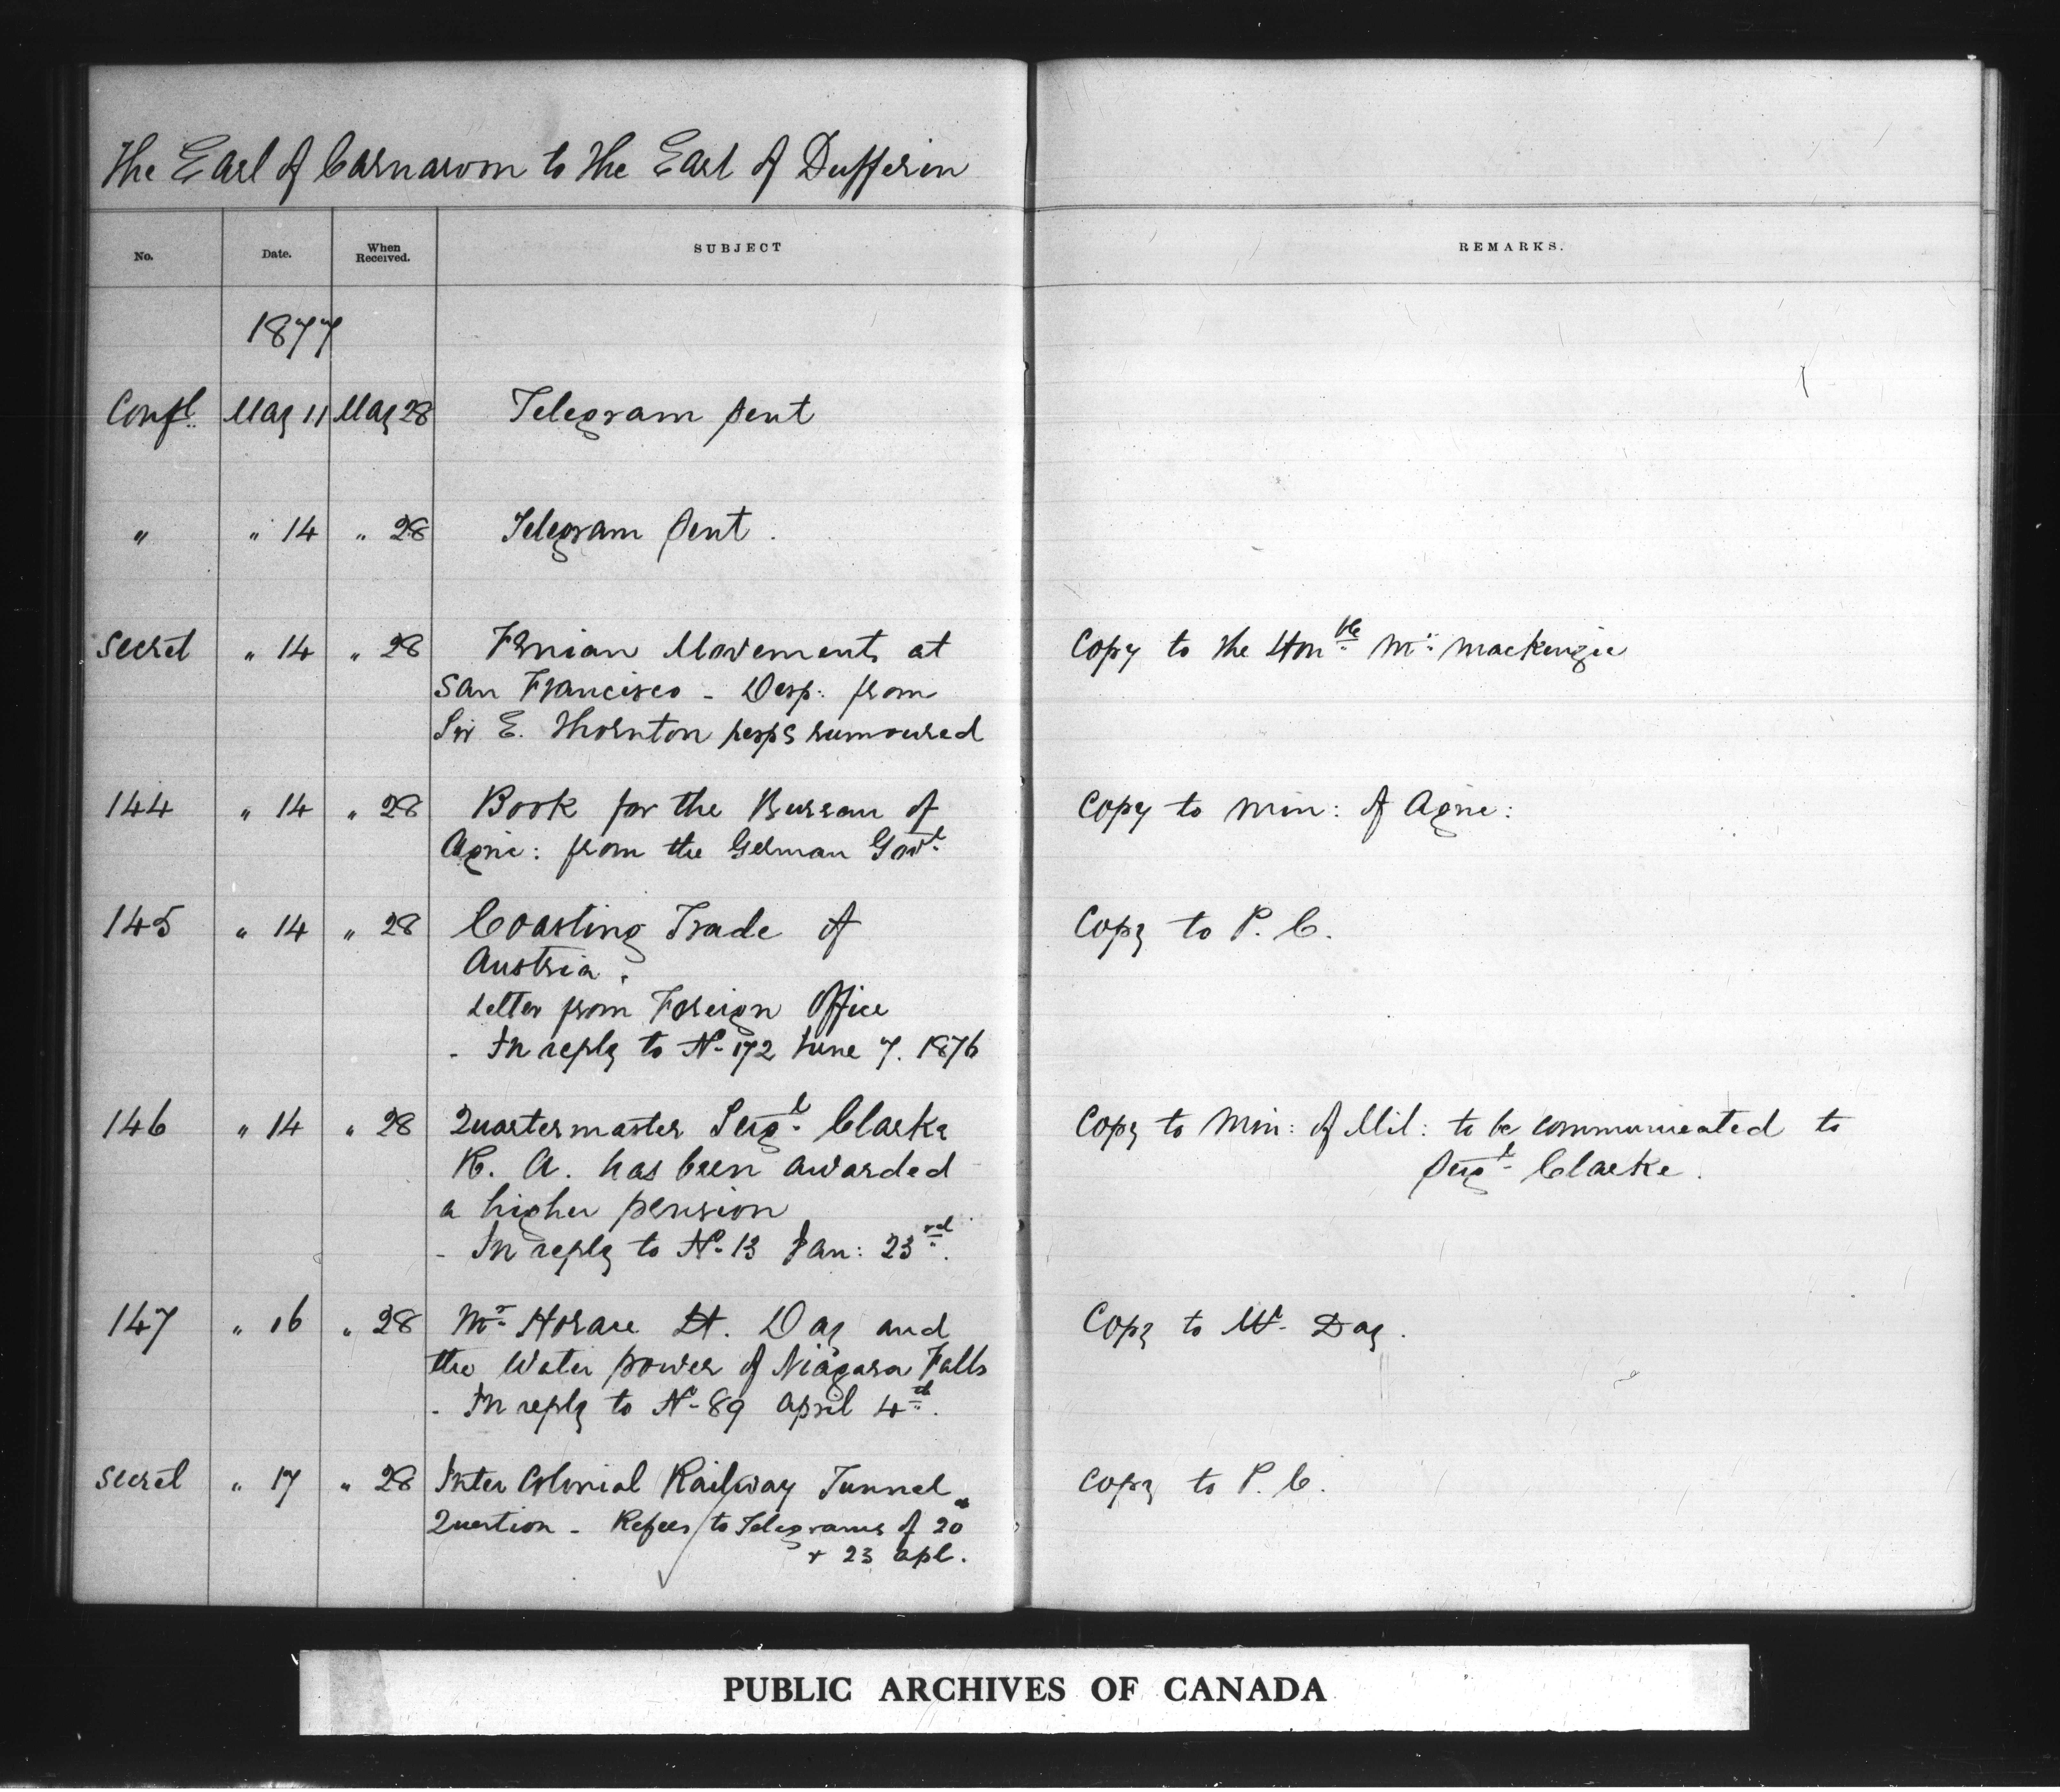 The Earl of Carnarvon to the Earl of Dufferin
No. Date. When Received. SUBJECT REMARKS.
1877
Confl. May 11 May 28 Telegram sent
" " 14 " 28 Telegram sent.
Secret " 14 " 28 Fenian Movements at Copy to the Honble. Mr. Mackenzie
San Francisco - Desp: from
Sir E. Thornton resps rumoured
144 " 14 " 28 Book for the Bureau of Copy to Min: of Agric:
Agric: from the German Govt.
145 " 14 " 28 Coasting Trade of Copy to P. C.
Austria.
Letter from Foreign Office
- In reply to No. 172 June 7. 1876
146 " 14 " 28 Quartermaster Sergt. Clarke Copy to Min: of Mil: to be communicated to
R. A. has been awarded Sergt. Clarke.
a higher pension
- In reply to No. 13 Jan: 23rd.
147 " 16 " 28 Mr. Horace H. Day and Copy to Mr. Day.
the Water power of Niagara Falls
- In reply to No. 89 April 4th.
Secret " 17 " 28 Inter Colonial Railway Tunnel Copy to P. C.
Question - Refers to Telegrams of 20
& 23 Apl.
PUBLIC ARCHIVES OF CANADA